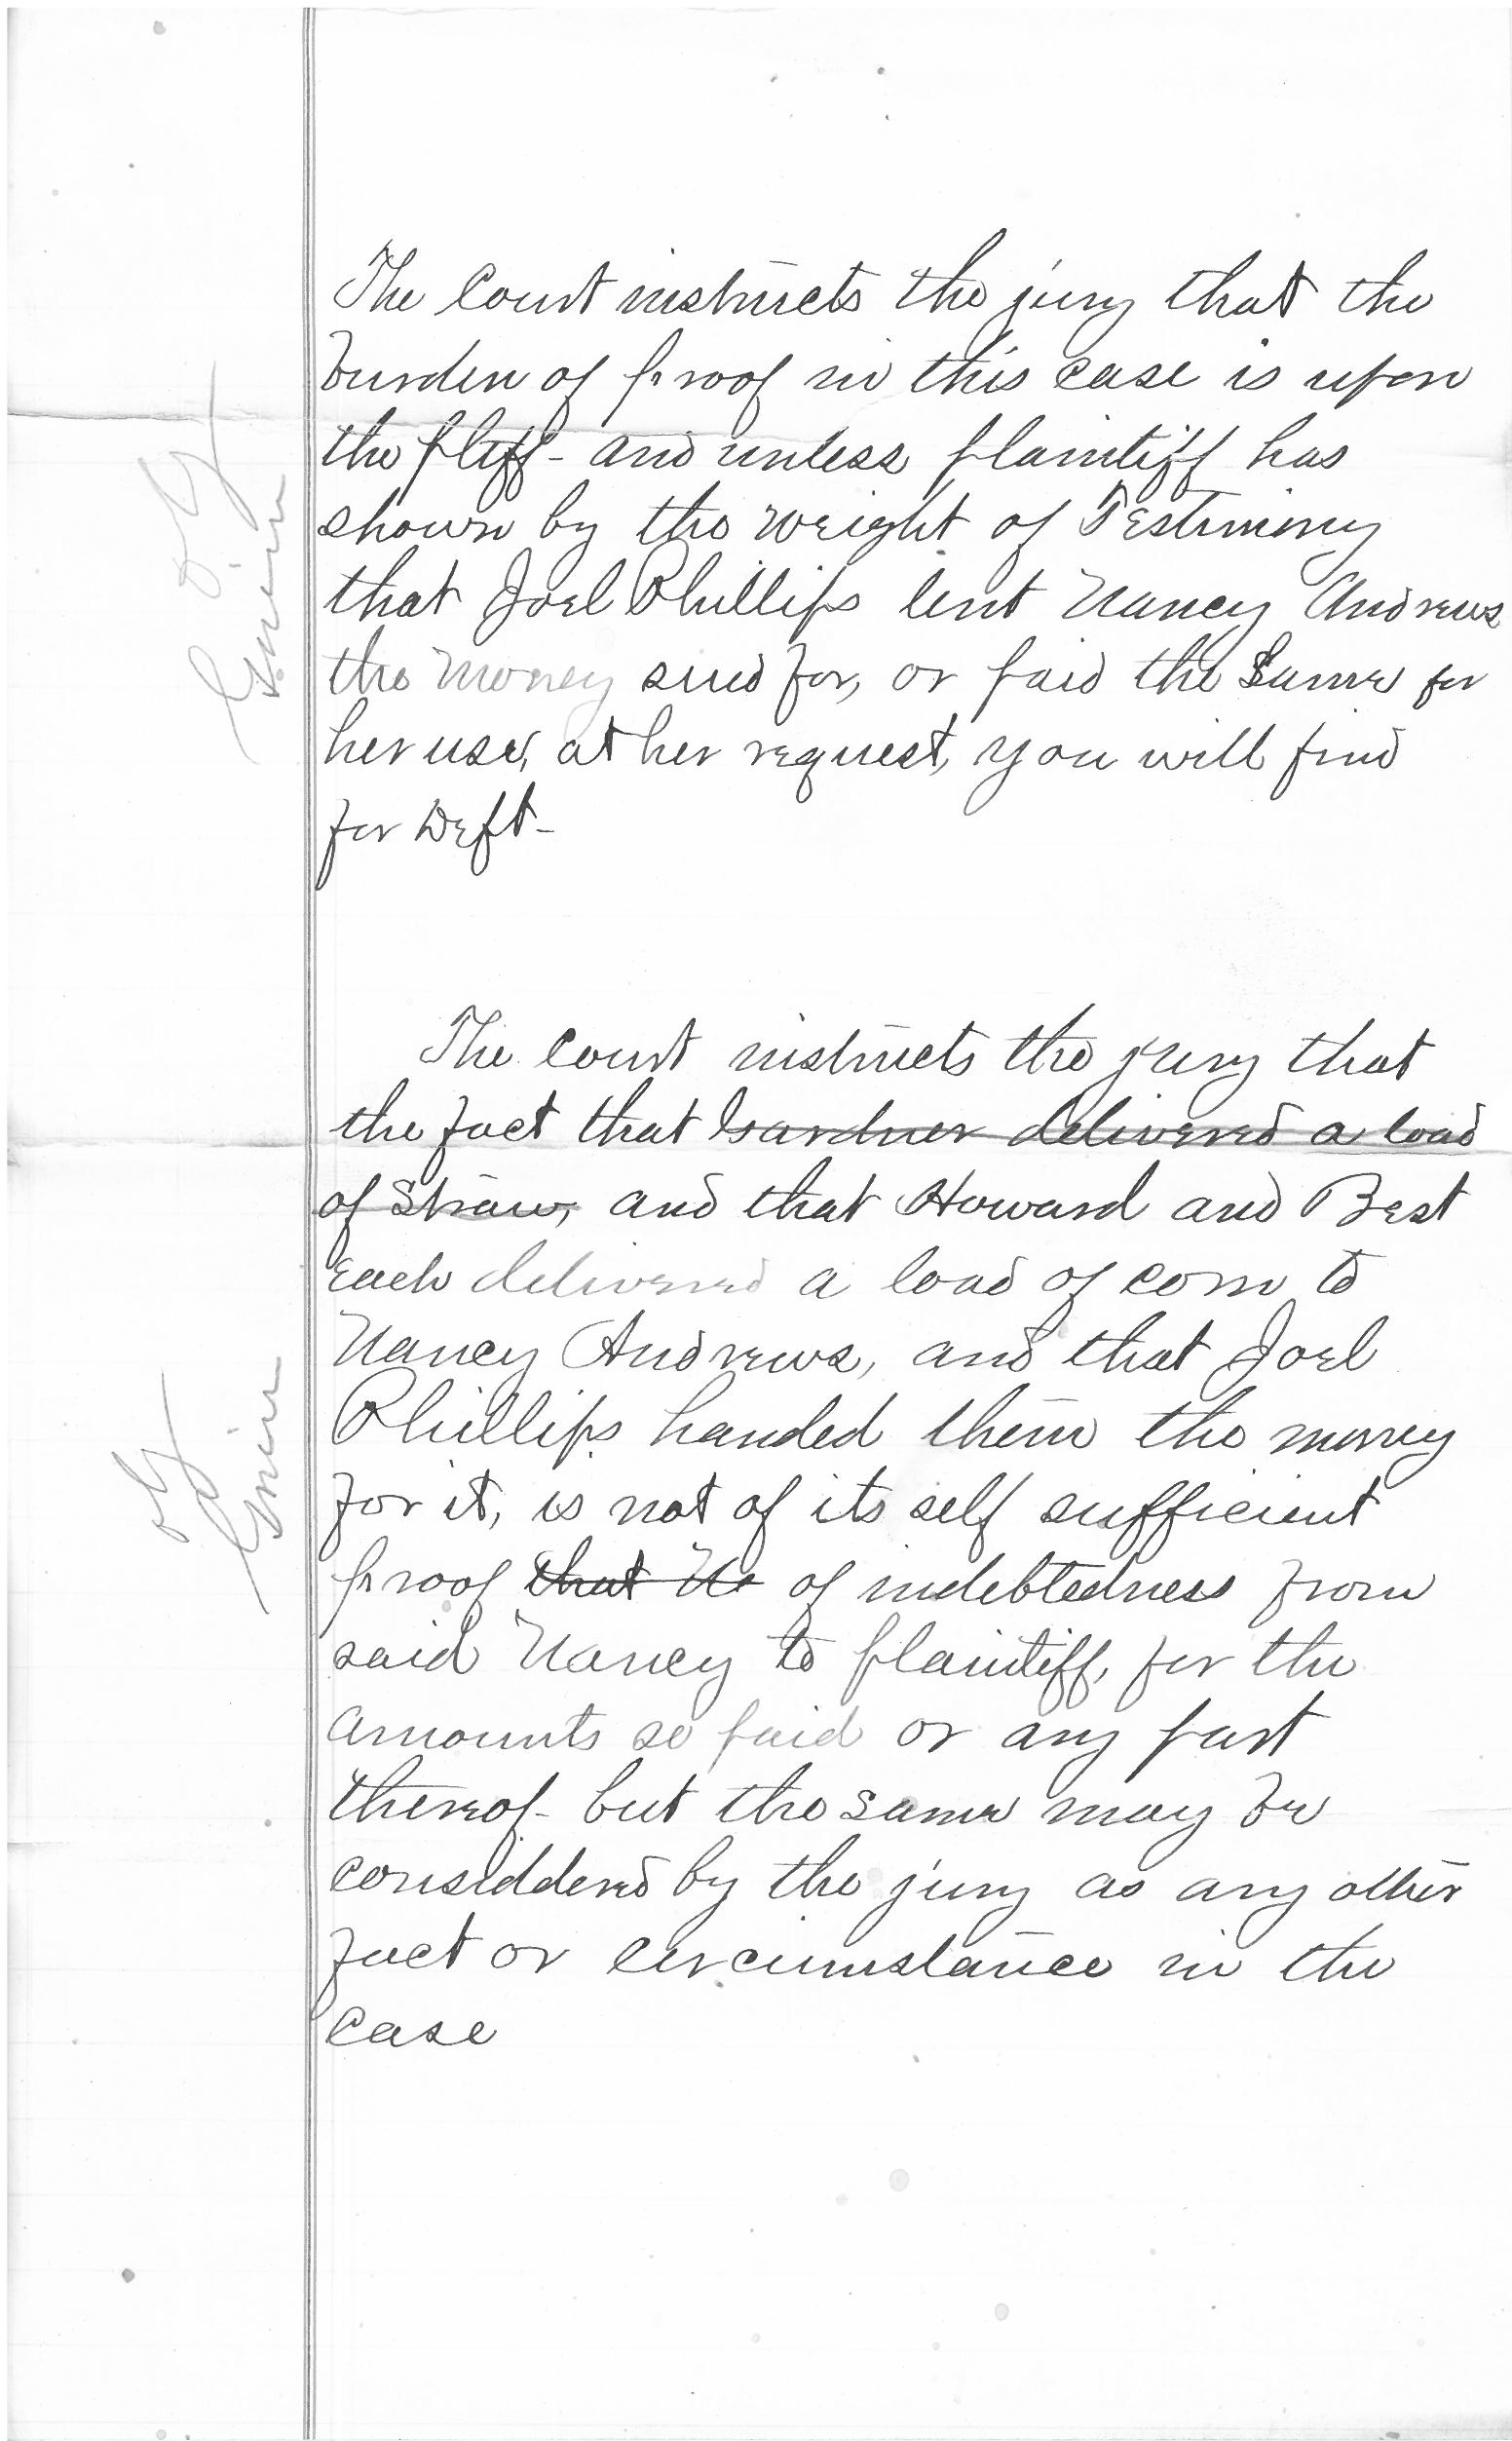 The Court instructs the jury that the
burden of proof in this case is upon
the pltff - and unless plaintiff has
shown by the weight of Testimony
that Joel Phillips lent Nancy Andrews
the money sued for, or paid the Same for
her use, at her request, you will find
for Deft -
Given
The Court instructs the jury that
the fact that Gardner delivered a load
of straw, and that Howard and Best
each delivered a load of corn to
Nancy Andrews, and that Joel
Phillips handed them the money
for it, is not of its self sufficient
proof that Na of indebtedness from
said Nancy to plaintiff, for the
amounts so paid or any part
thereof - but the same may be
considdered by the jury as any other
fact or circumstance in the
case
Given